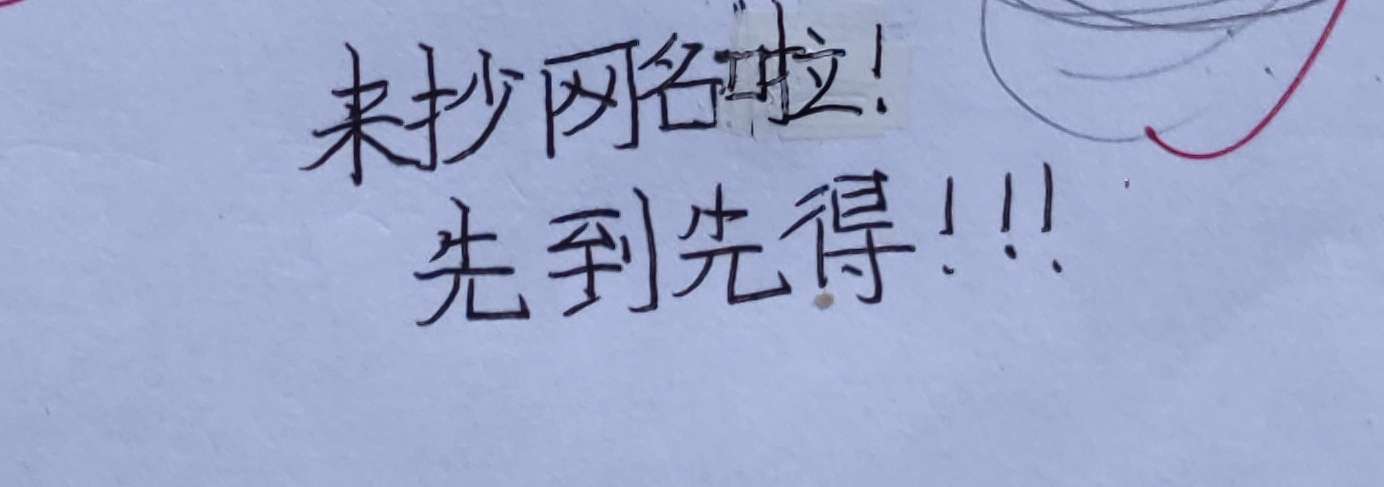 来抄网名啦!
先到先得!!!